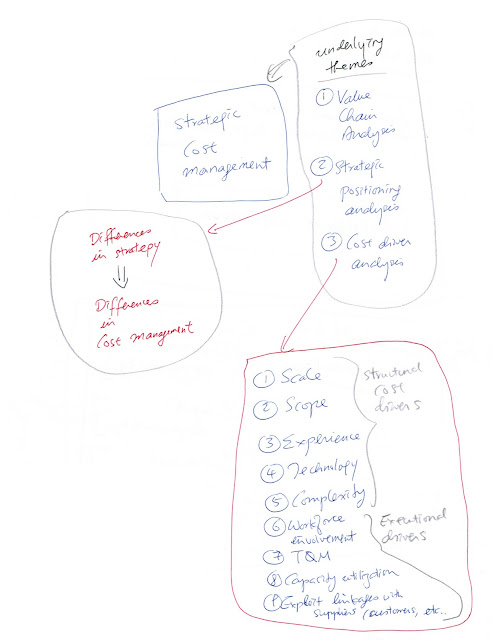 underlying
themes
① Value
Chain
Analysis
② Strategic
positioning
analysis
③ Cost driver
analysis
Strategic
Cost
management
Differences
in strategy
⇓
Differences
in
Cost management
① Scale
② Scope
③ Experience
④ Technology
⑤ Complexity
Structural
Cost
drivers
⑥ Workforce
involvement
⑦ TQM
⑧ Capacity utilization
⑨ Exploit linkages with
suppliers, customers, etc..
Executional
drivers